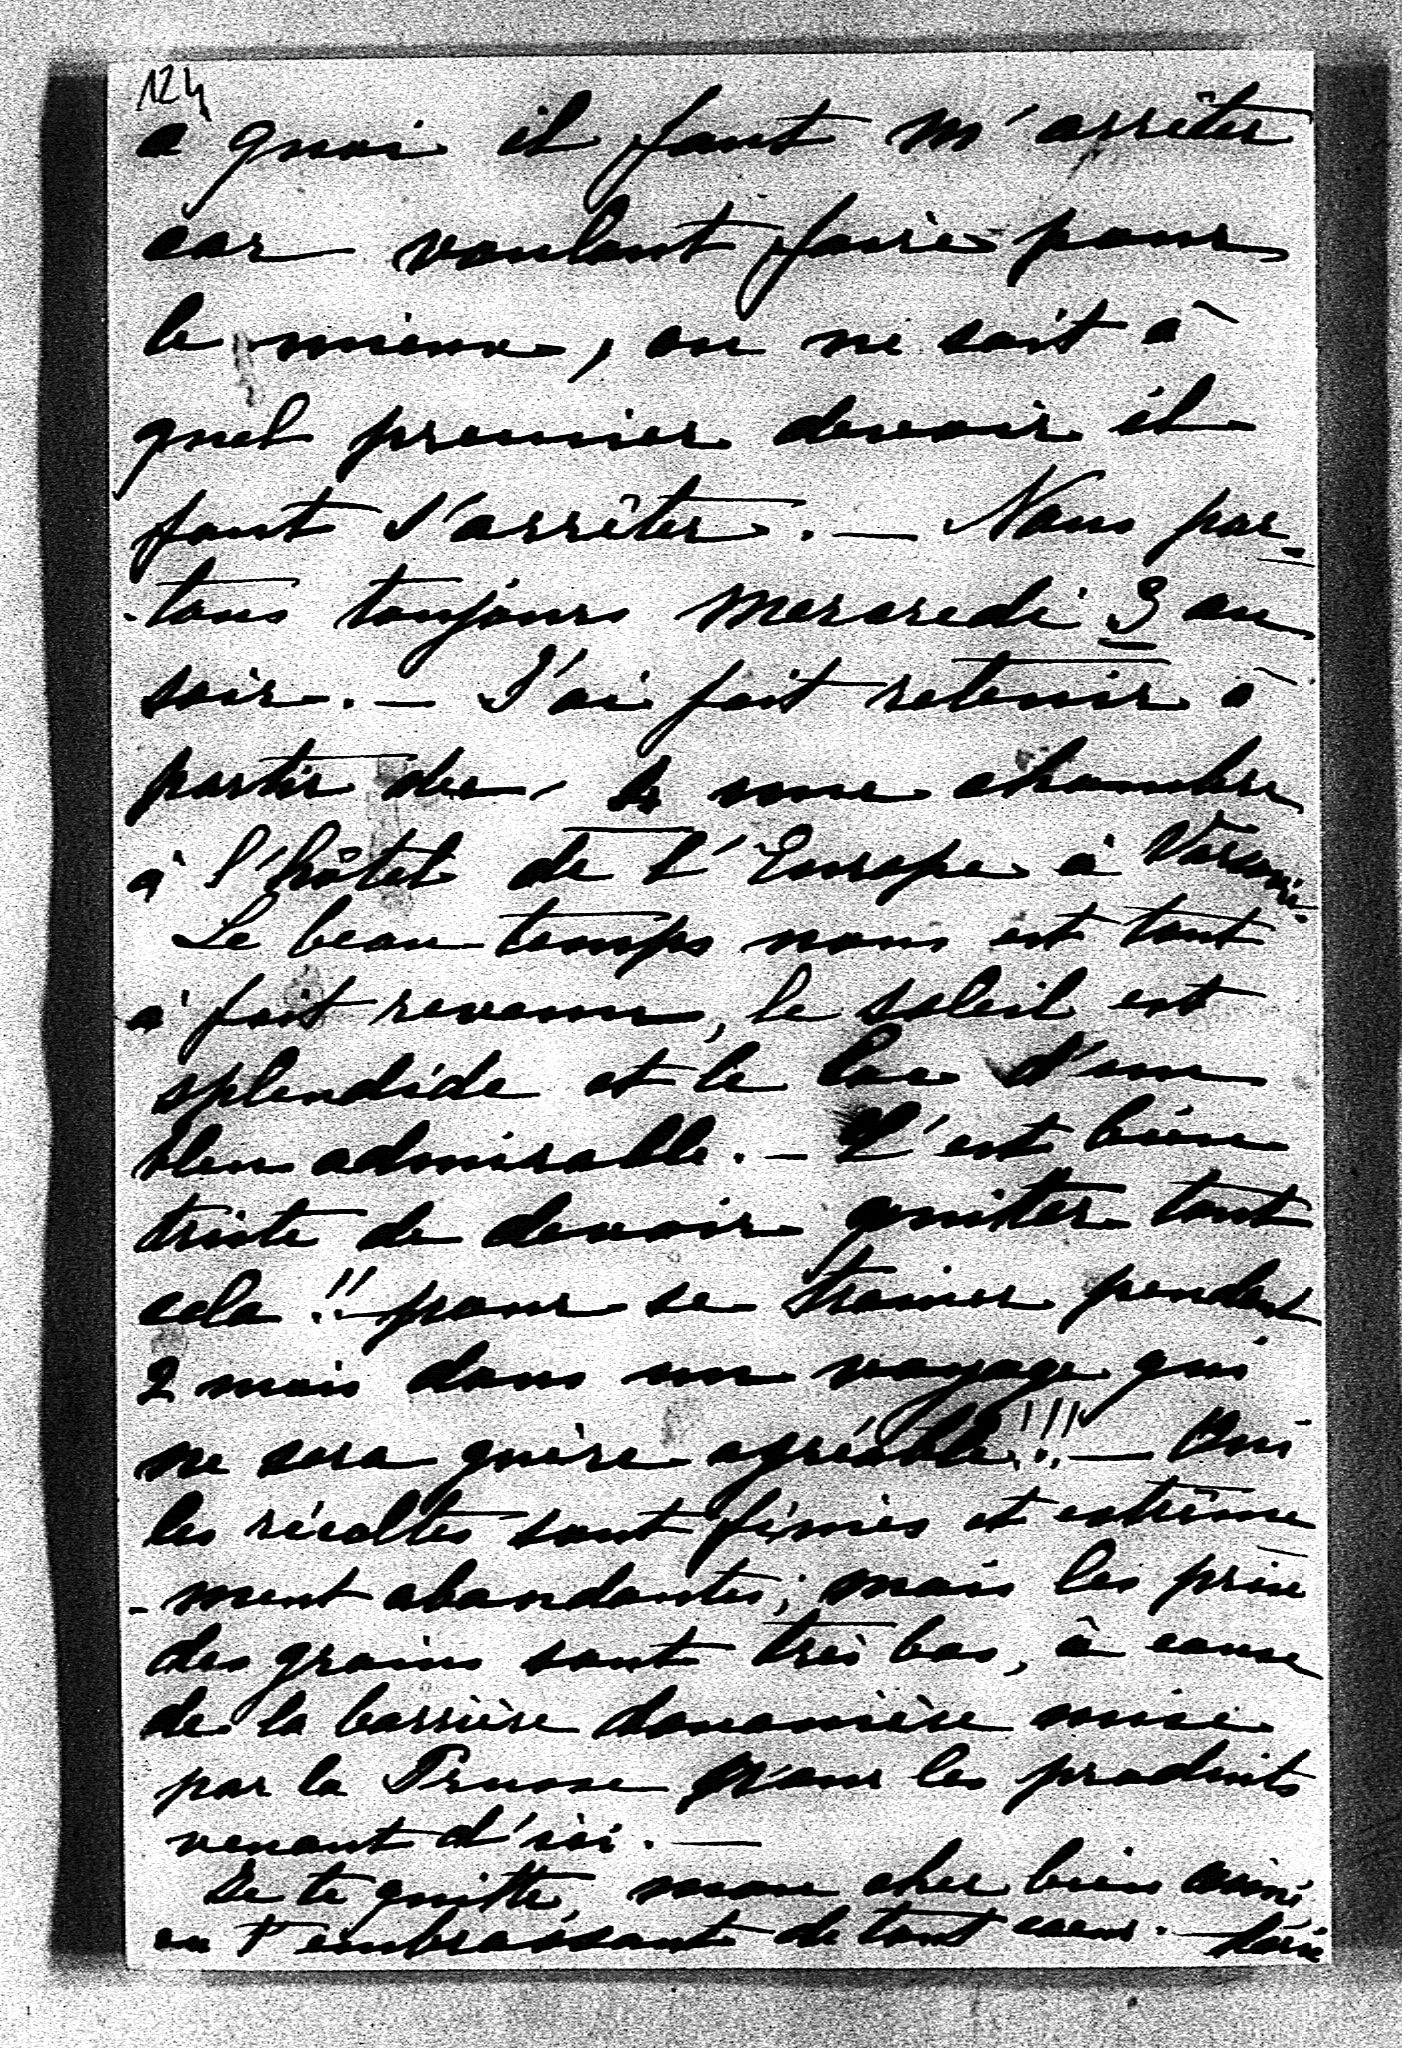 124
à quoi il faut m'arrêter
car voulant faire pour
le mieux, on ne sait à
quel premier devoir il
faut s'arrêter. — Nous par-
-tons toujours mercredi 3 au
soir. — J'ai fait retenir à
partir du 4 une chambre
à l'hôtel de l'Europe à Varsovie.
Le beau temps nous est tout
à fait revenu, le soleil est
splendide et le lac d'un
bleu admirable. — C'est bien
triste de devoir quitter tout
cela !! pour se trainer pendant
2 mois dans un voyage qui
ne sera guère agréable!!! — Oui
les récoltes sont finies et extrême
-ment abondantes; mais les prix
des grains sont très bas, à cause
de la barrière douanière mise
par la Prusse pour les produits
venant d'ici. —
Je te quitte, mon cher bien aimé
en t'embrassant de tout coeur. —